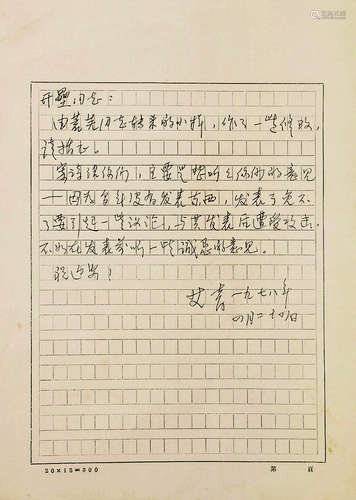 开垒同志：
由萧荒同志转来的小样，作了一些修改，
请指正。
寄诗给你们，主要是想听听你们的意见
——因为多年没有发表东西，发表了免不
了要引起一些议论，与其发表后遭受攻击，
不如在发表前听一些诚恳的意见。
祝近安！
艾青 一九七八年
四月二十四日
20×15=300 第 页